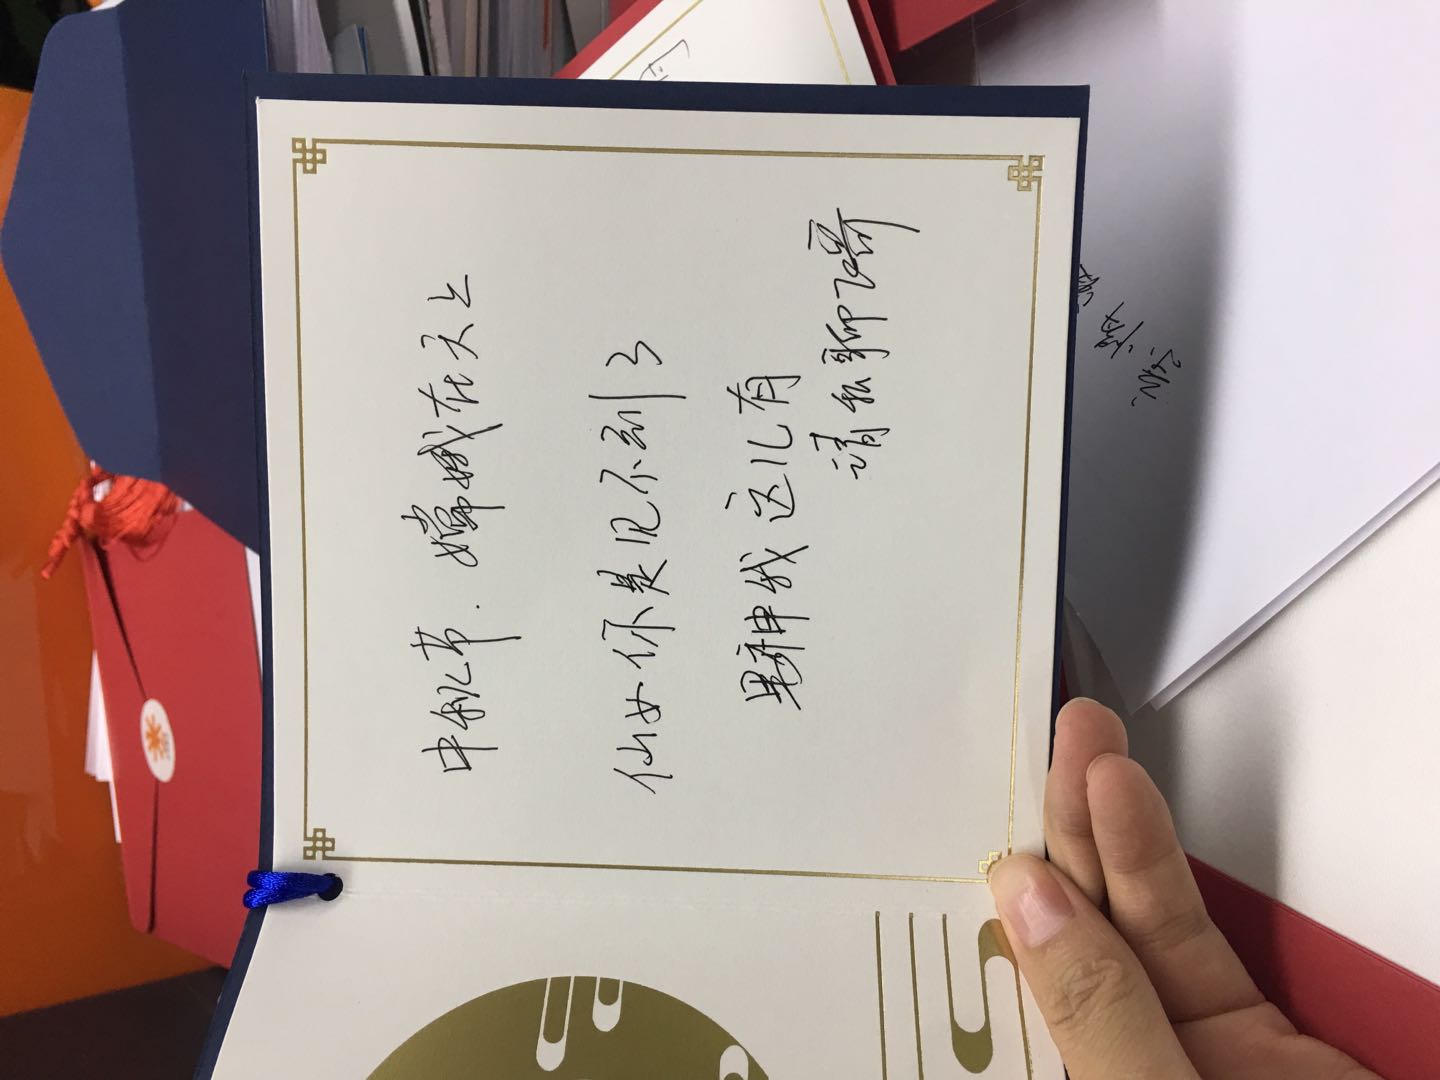 中秋节.嫦娥在天上
仙女你是见不到了
男神我这儿有
请和聊